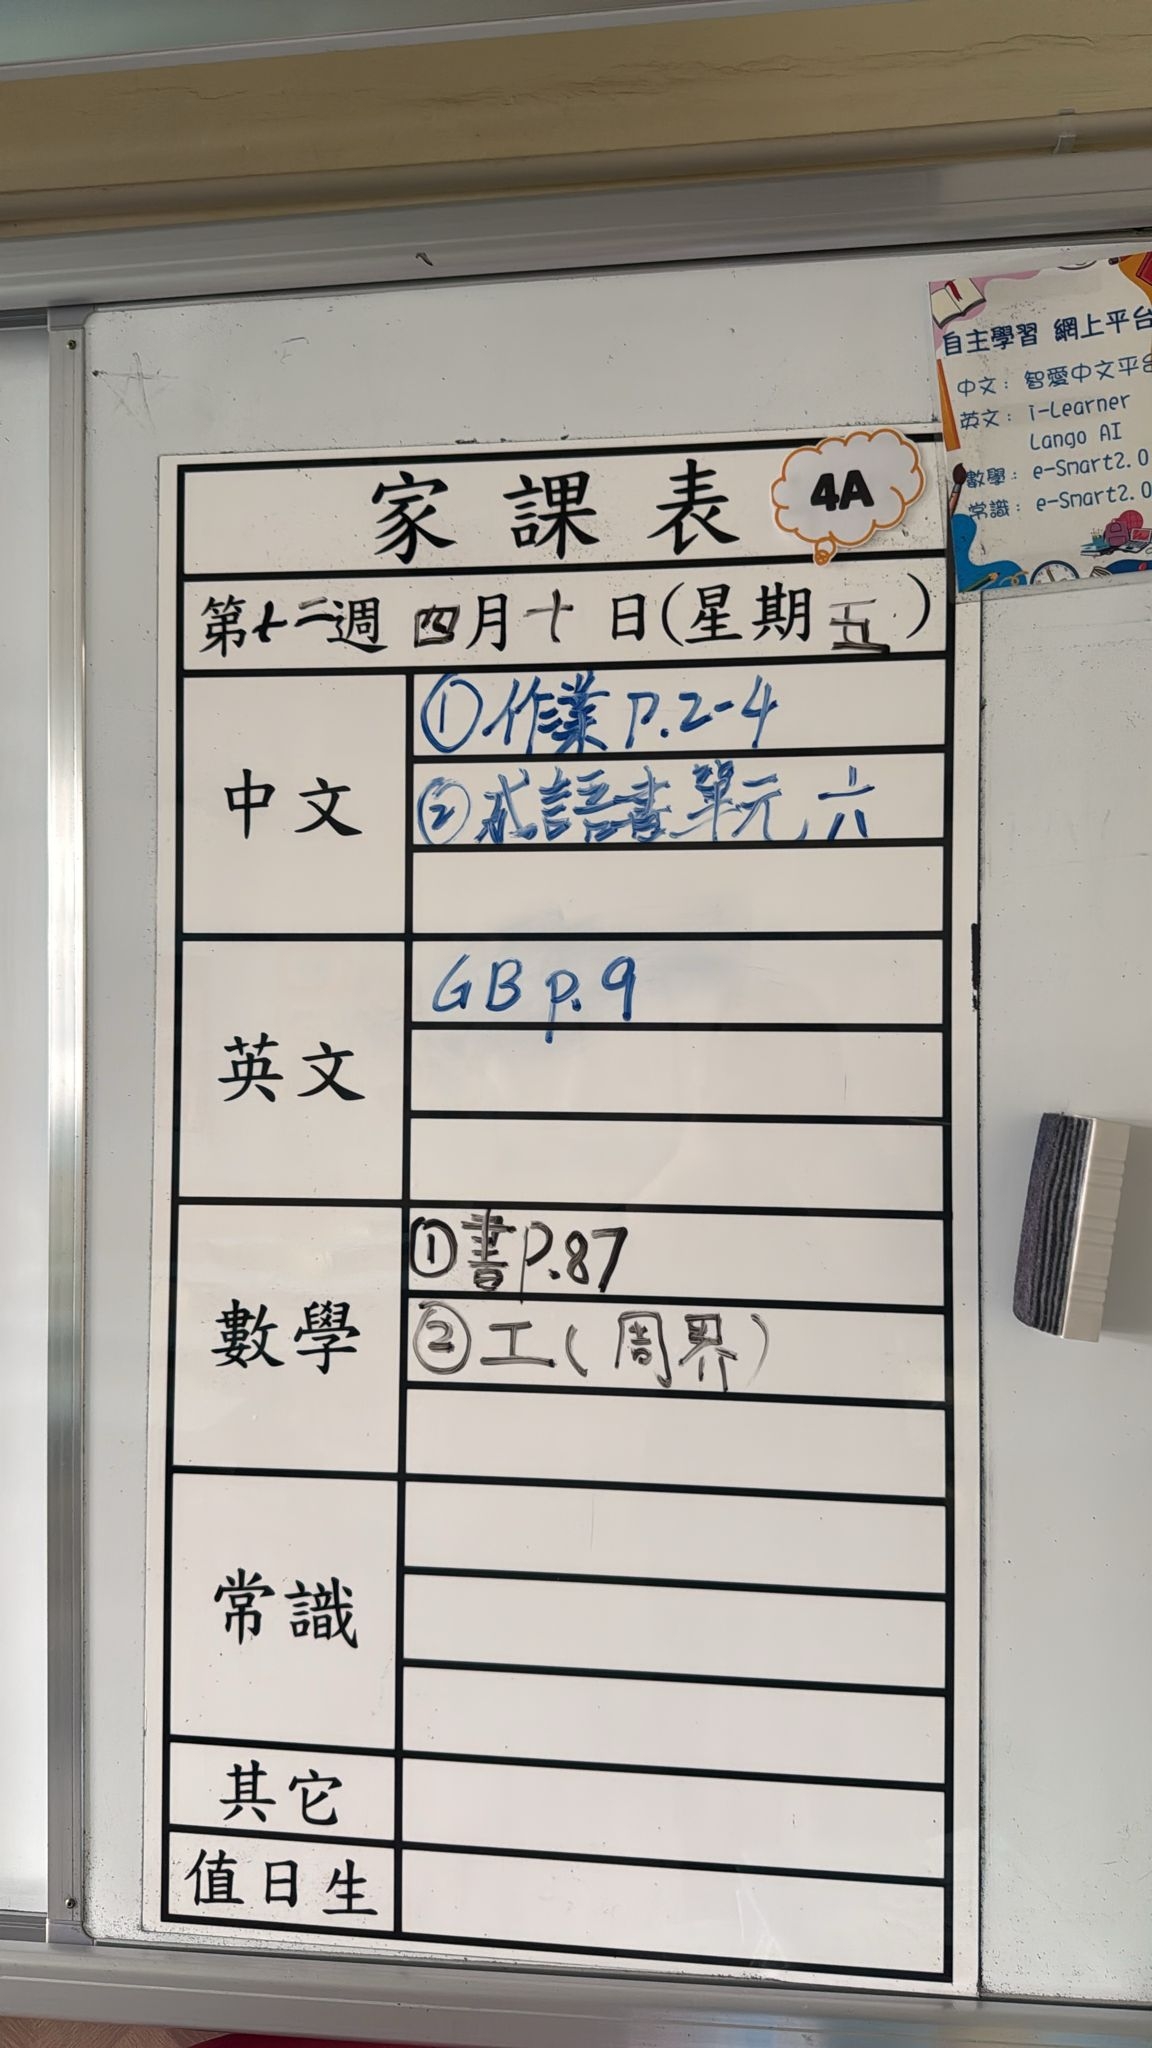 家課表
4A
第十二週 四月十日(星期五)
中文
①作業 P.2-4
②成語書單元六
英文
GB p.9
數學
①書P.87
②工(周界)
常識
其它
值日生
自主學習 網上平台
中文：智愛中文平台
英文：i-Learner
Lango AI
數學：e-Smart2.0
常識：e-Smart2.0